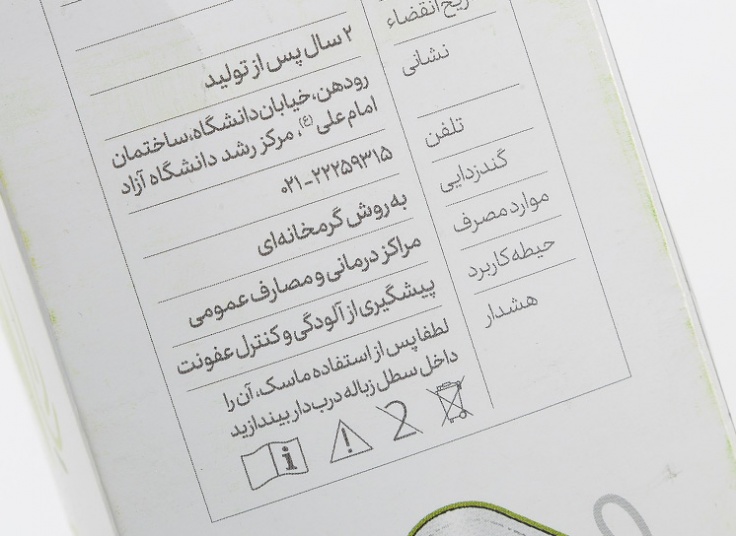 تاریخ انقضاء
۲ سال پس از تولید
نشانی
رودهن، خیابان دانشگاه، ساختمان
امام علی (ع)، مرکز رشد دانشگاه آزاد
تلفن
۰۲۱-۲۲۲۵۹۳۱۵
گندزدایی
به روش گرمخانه‌ای
موارد مصرف
مراکز درمانی و مصارف عمومی
حیطه کاربرد
پیشگیری از آلودگی و کنترل عفونت
هشدار
لطفا پس از استفاده ماسک، آن را
داخل سطل زباله درب دار بیندازید
2
i